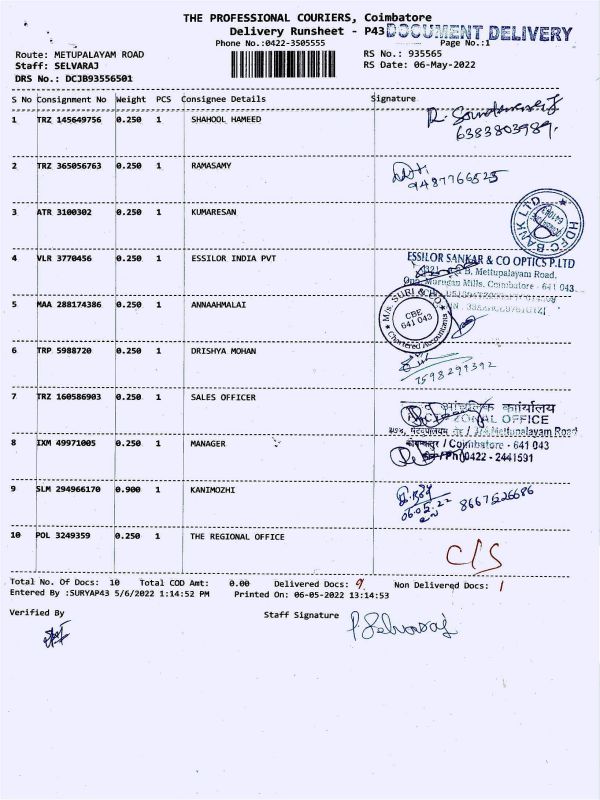 THE PROFESSIONAL COURIERS, Coimbatore
Delivery Runsheet - P43
DOCUMENT DELIVERY
Phone No.:0422-3505555
Page No.:1
Route: METUPALAYAM ROAD
RS No.: 935565
Staff: SELVARAJ
RS Date: 06-May-2022
DRS No.: DCJB93556501
S No Consignment No Weight PCS Consignee Details Signature
1 TRZ 145649756 0.250 1 SHAHOOL HAMEED
6383803989.
2 TRZ 365056763 0.250 1 RAMASAMY
9487766525
3 ATR 3100302 0.250 1 KUMARESAN
HDFC BANK LTD
4 VLR 3770456 0.250 1 ESSILOR INDIA PVT
ESSILOR SANKAR & CO OPTICS P.LTD
B, Mettupalayam Road,
Mills, Coimbatore - 641 043
5 MAA 288174386 0.250 1 ANNAAHMALAI
M/s SURI & CO
CBE
641 043
Chartered Accountants
6 TRP 5988720 0.250 1 DRISHYA MOHAN
7598299392
7 TRZ 160586903 0.250 1 SALES OFFICER
कार्यालय
ZONAL OFFICE
Mettupalayam Road
8 IXM 49971005 0.250 1 MANAGER
/ Coimbatore - 641 043
/ Ph 0422 - 2441591
9 SLM 294966170 0.900 1 KANIMOZHI
06.05.22 8667526686
10 POL 3249359 0.250 1 THE REGIONAL OFFICE
C/S
Total No. Of Docs: 10 Total COD Amt: 0.00 Delivered Docs: 9 Non Delivered Docs: 1
Entered By :SURYAP43 5/6/2022 1:14:52 PM Printed On: 06-05-2022 13:14:53
Verified By
Staff Signature
P. Selvaraj